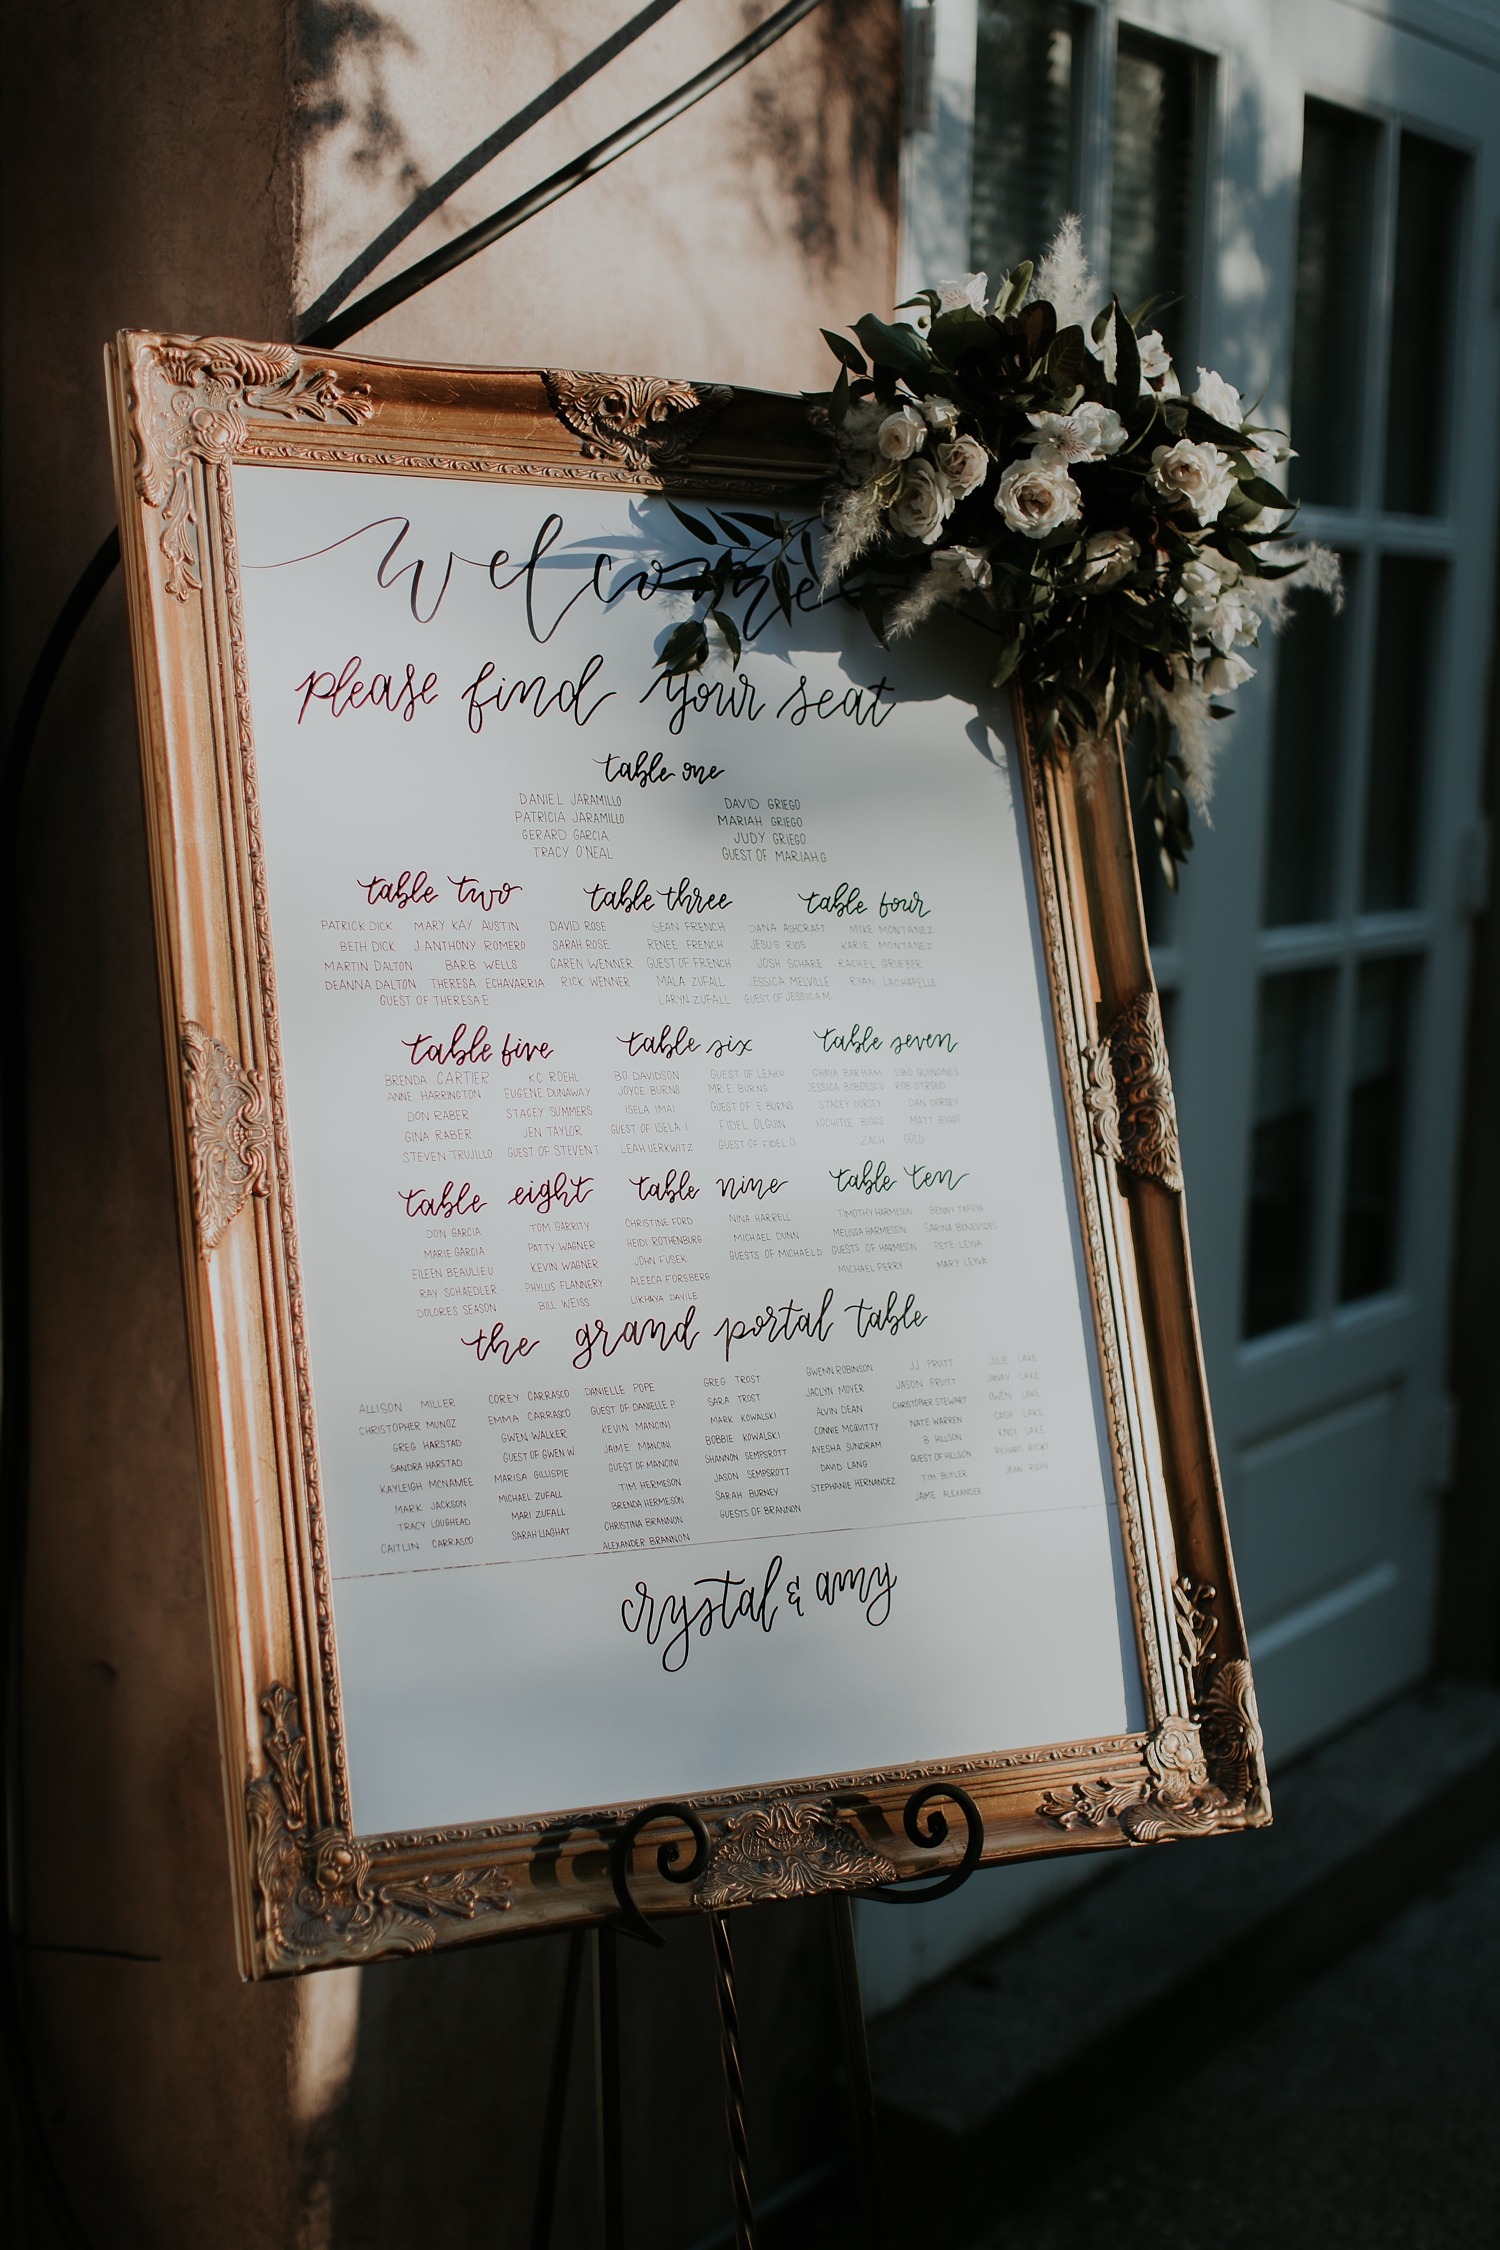 welcome
please find your seat
table one
DANIEL JARAMILLO DAVID GRIEGO
PATRICIA JARAMILLO MARIAH GRIEGO
GERARD GARCIA JUDY GRIEGO
TRACY O'NEAL GUEST OF MARIAH G.
table two table three table four
PATRICK DICK MARY KAY AUSTIN DAVID ROSE SEAN FRENCH DANA ASHCRAFT MIKE MONTANEZ
BETH DICK J. ANTHONY ROMERO SARAH ROSE RENEE FRENCH JESUS RIOS KARIE MONTANEZ
MARTIN DALTON BARB WELLS CAREN WENNER GUEST OF FRENCH JOSH SCHARE RACHEL GRUEBER
DEANNA DALTON THERESA ECHAVARRIA RICK WENNER MALA ZUFALL JESSICA MELVILLE RYAN LACHAPELLE
GUEST OF THERESA E. CARYN ZUFALL GUEST OF JESSICA M
table five table six table seven
BRENDA CARTIER KC ROEHL BO DAVIDSON GUEST OF LEAH U CHAYA BARHAM SIBO QUINONES
ANNE HARRINGTON EUGENE DUNAWAY JOYCE BURNS MR. E. BURNS JESSICA ROB STROUD
DON RABER STACEY SUMMERS ISELA IMAI GUEST OF E. BURNS STACEY DORSEY DAN DORSEY
GINA RABER JEN TAYLOR GUEST OF ISELA I FIDEL OLGUIN XOCHITLE BIGGS MATT BIGGS
STEVEN TRUJILLO GUEST OF STEVEN T LEAH UERKWITZ GUEST OF FIDEL O. ZACH GOLD
table eight table nine table ten
DON GARCIA TOM GARRITY CHRISTINE FORD NINA HARRELL TIMOTHY HARMESON BENNY TAFOYA
MARIE GARCIA PATTY WAGNER HEIDI ROTHENBURG MICHAEL DUNN MELISSA HARMESON SARINA BENEVIDES
EILEEN BEAULIEU KEVIN WAGNER JOHN FUSEK GUESTS OF MICHAEL D. GUESTS OF HARMESON PETE LEYVA
RAY SCHAEDLER PHYLLIS FLANNERY ALEECA FORSBERG MICHAEL PERRY MARY LEYVA
DOLORES SEASON BILL WEISS LIKHAYA DAYILE
the grand portal table
ALLISON MILLER COREY CARRASCO DANIELLE POPE GREG TROST GWENN ROBINSON JJ PRUITT JULIE LAKE
CHRISTOPHER MUNOZ EMMA CARRASCO GUEST OF DANIELLE P. SARA TROST JACLYN MOYER JASON PRUITT JANAY LAKE
GREG HARSTAD GWEN WALKER KEVIN MANCINI MARK KOWALSKI ALVIN DEAN CHRISTOPHER STEWART OWEN LAKE
SANDRA HARSTAD GUEST OF GWEN W. JAIME MANCINI BOBBIE KOWALSKI CONNIE MCGUITTY NATE WARREN CASH LAKE
KAYLEIGH MCNAMEE MARISA GILLISPIE GUEST OF MANCINI SHANNON SEMPSROTT AYESHA SUNDRAM B. HILLSON KNOX LAKE
MARK JACKSON MICHAEL ZUFALL TIM HERMESON JASON SEMPSROTT DAVID LANG GUEST OF HILLSON RICHARD
TRACY LOUGHEAD MARI ZUFALL BRENDA HERMESON SARAH BURNEY STEPHANIE HERNANDEZ TIM BUTLER JEAN
CAITLIN CARRASCO SARAH LIAGHAT CHRISTINA BRANNON GUESTS OF BRANNON JAIME ALEXANDER
ALEXANDER BRANNON
crystal & amy